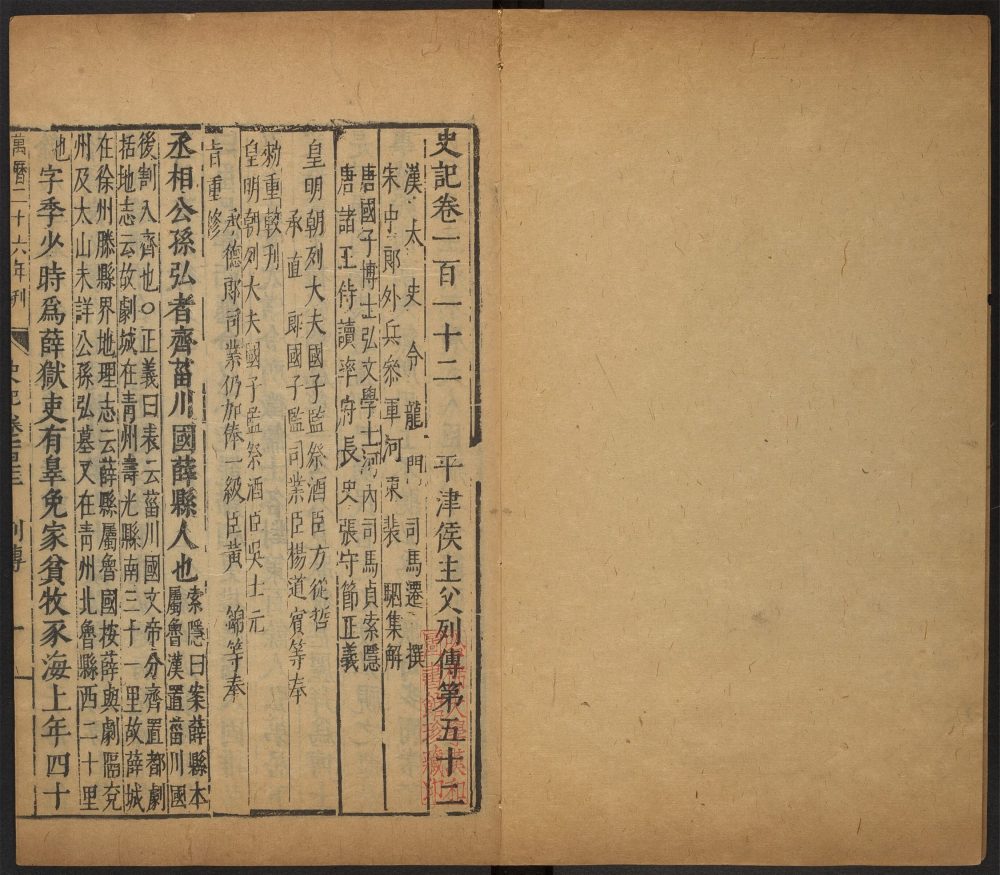 史記卷一百一十二　平津侯主父列傳第五十二
漢太史令龍門司馬遷撰
宋中郎外兵參軍河東裴駰集解
唐國子博士弘文學士河內司馬貞索隱
唐諸王侍讀率府長史張守節正義
皇明朝列大夫國子監祭酒臣方從哲
承直郎國子監司業臣楊道賓等奉
勑重較刊
皇明朝列大夫國子監祭酒臣吳士元
承德郎司業仍加俸一級臣黃錦等奉
旨重修
丞相公孫弘者齊菑川國薛縣人也
索隱曰案薛縣本
屬魯漢置菑川國
後割入齊也○正義曰表云菑川國文帝分齊置都劇
括地志云故劇城在青州壽光縣南三十一里故薛城
在徐州滕縣界地理志云薛縣屬魯國按薛與劇隔兗
州及太山未詳公孫弘墓又在青州北魯縣西二十里
也
字季少時爲薛獄吏有辠免家貧牧豕海上年四十
萬曆二十六年刊
列傳